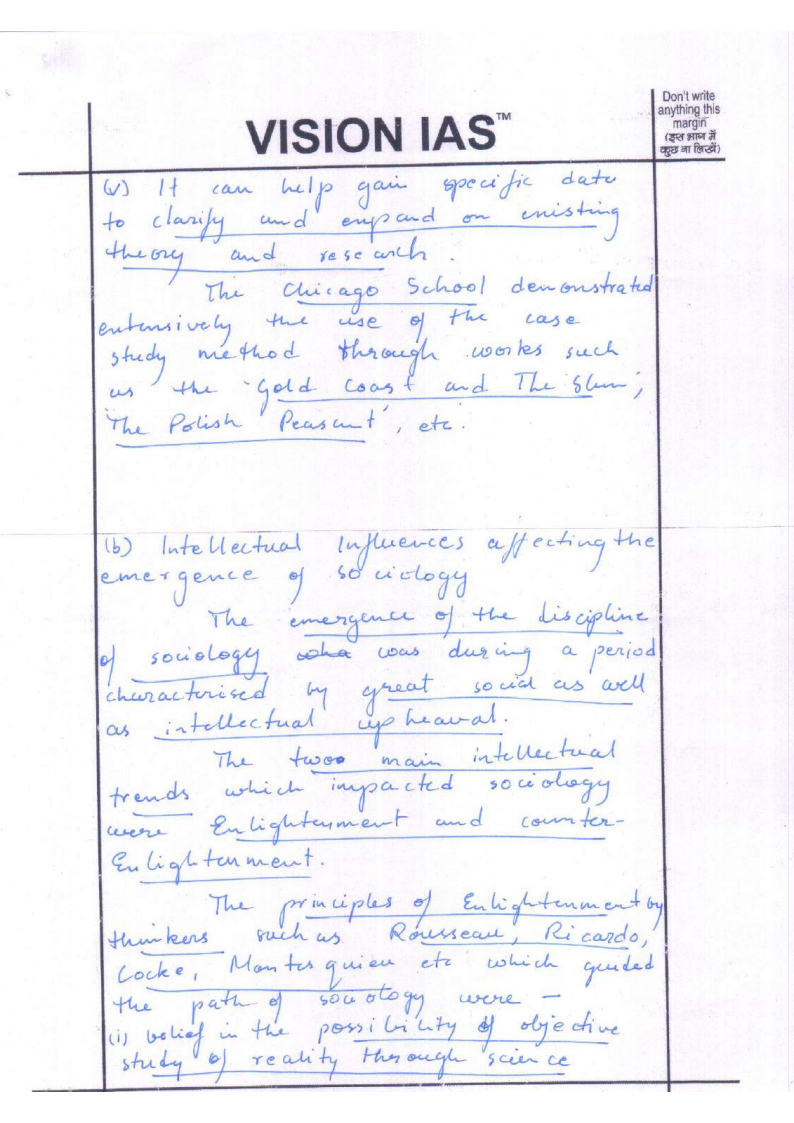 VISION IAS™
Don't write
anything this
margin
(इस भाग में
कुछ ना लिखें)
(v) It can help gain specific data
to clarify and expand on existing
theory and research.
The Chicago School demonstrated
extensively the use of the case
study method through works such
as the 'Gold Coast and The Slum',
'The Polish Peasant', etc.
(b) Intellectual Influences affecting the
emergence of sociology
The emergence of the discipline
of sociology was during a period
characterised by great social as well
as intellectual upheaval.
The two main intellectual
trends which impacted sociology
were Enlightenment and counter-
Enlightenment.
The principles of Enlightenment by
thinkers such as Rousseau, Ricardo,
Locke, Montesquieu etc which guided
the path of sociology were –
(i) belief in the possibility of objective
study of reality through science